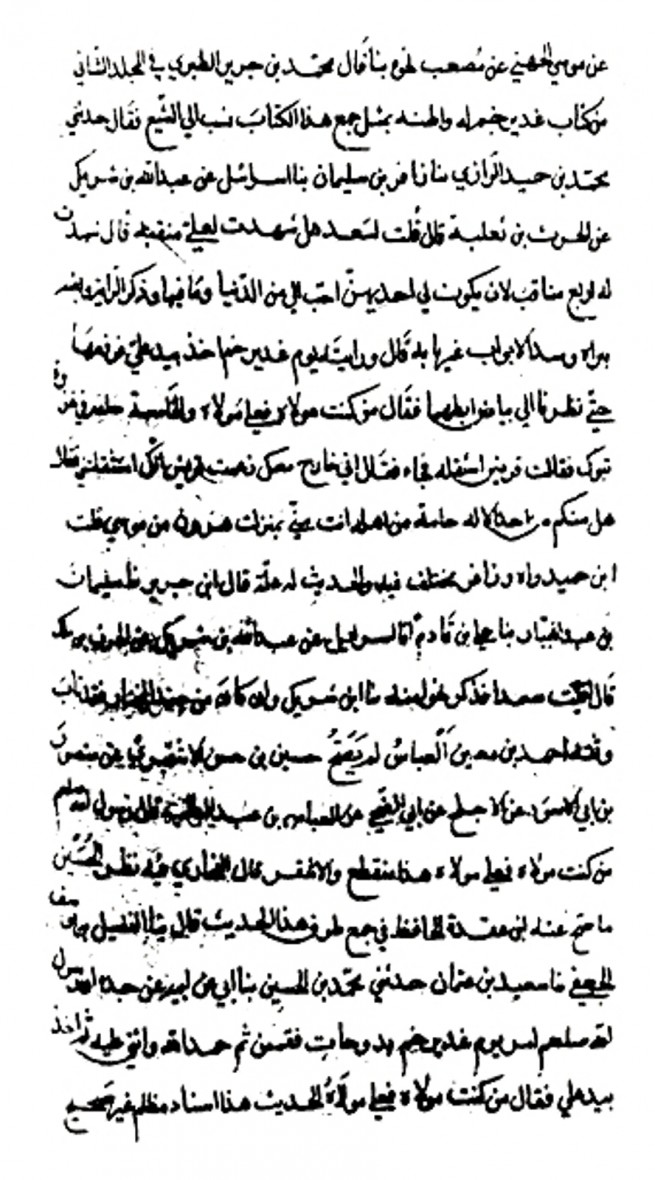 عن موسي الجهني عن مصعب نحوه بنا قال محمد بن جرير الطبري في المجلد الثاني
من كتاب غدير خم له واظنه بمثل جمع هذا الكتاب نسب الي التشيع فقال حدثني
محمد بن حميد الرازي بنا زافر بن سليمان بنا اسرائيل عن عبدالله بن شريك
عن الحرث بن ثعلبة قال قلت لسعد هل شهدت لعلي منقبة قال شهدت
له اربع مناقب لان يكون لي احديهن احب الي من الدنيا وما فيها وذكر الراية
براه وسد الابواب غيربابه قال ورايته يوم غدير خم اخذ بيد علي فرفعها
حتي نظرنا الي بياض ابطيهما فقال من كنت مولاه فعلي مولاه والخامسة خلفه في غزوة
تبوك فقالت قريش استثقله فجاء فقال اني خارج معك زعمت قريش انك استثقلتني فقال
هل منكم احد الا له حامة من اهله انت مني بمنزلة هرون من موسي قلت
ابن حميد واه وزافر مختلف فيه والحديث له علة قال ابن جرير بنا سليمان
بن عبد الجبار بنا علي بن قادم انا اسرائيل عن عبدالله بن شريك عن الحرث بن ملك
قال لقيت سعدا فذكر نحو منه بنا ابن شريك وان كان من
وثقه احمد بن معين العباس حسين بن حسن الاشقر بنا منصور
بن ابي الاسود عن الاجلح عن ابي عن العباس بن عبد المطلب قال رسول الله صلعم
من كنت مولاه فعلي مولاه هذا منقطع والاشقر قال البخاري فيه نظر الحسين
ما صح عنه ابن عقدة الحافظ في جمع طرق هذا الحديث قال بنا الفضيل بن يوسف
الجعفي بنا سعيد بن عثمان حدثني محمد بن الحسين بنا ابي عن ابيه عن جده ان رسول
الله صلعم امر يوم غدير خم بدوحات فقممن ثم حمد الله واثني عليه ثم اخذ
بيد علي فقال من كنت مولاه فعلي مولاه الحديث هذا اسناد مظلم غير صحيح